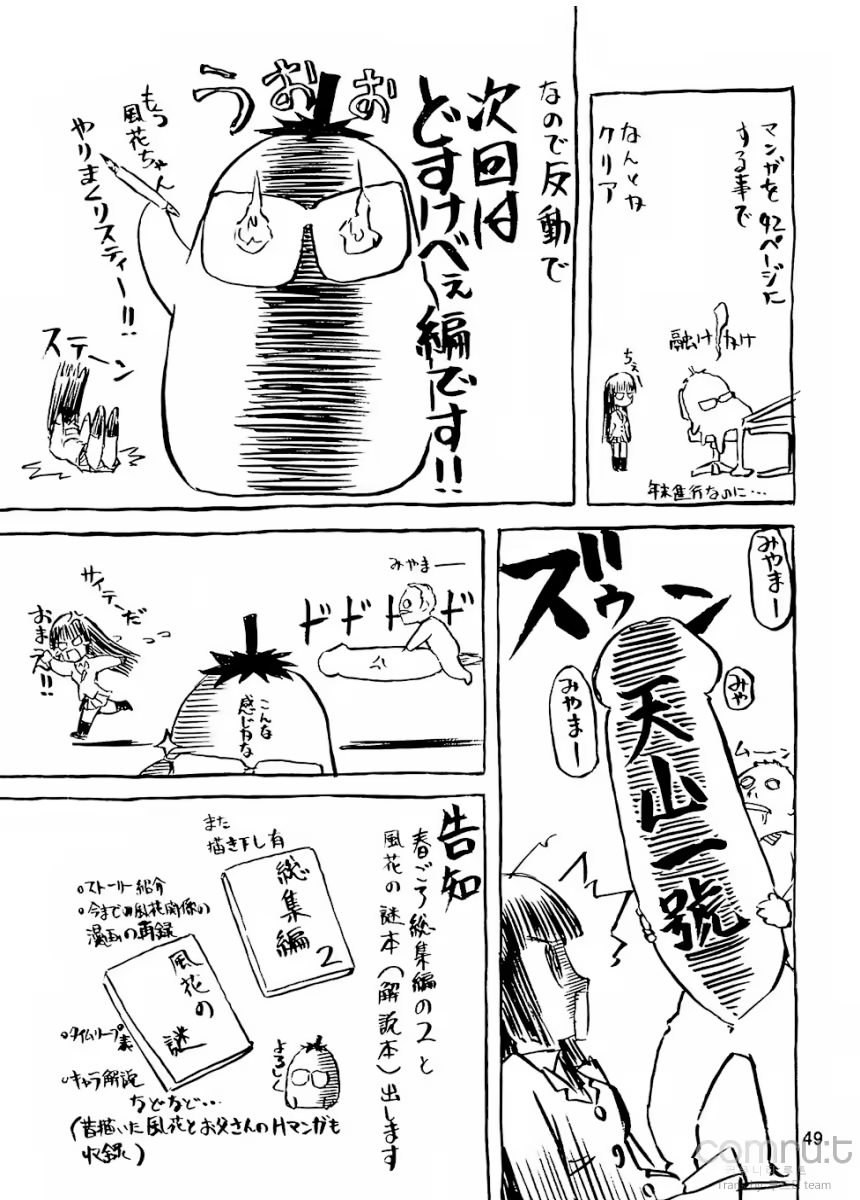 マンガを42ページに
する事で
なんとか
クリア
融けかけ
ちぇー
年末進行なのに…
なので反動で
次回は
どすけべぇ編です!!
うおおお
もっ
風花ちゃん
やりまくリスティー!!
ステーン
みやまー
ズゥン
みやまー
みゃ
ムーン
天山一號
みやまー
ドドドド
サイテーだ
おまえ!!
こんな
感じかな
告知
春ごろ総集編の2と
風花の謎本(解説本)出します
また
描き下し有
総集編2
○ストーリー紹介
○今までの風花関係の
漫画の再録
風花の謎
○タイムリープ表
○キャラ解説
などなど…
(昔描いた風花とお父さんのHマンガも
収録)
よろしく
49
comnu:t